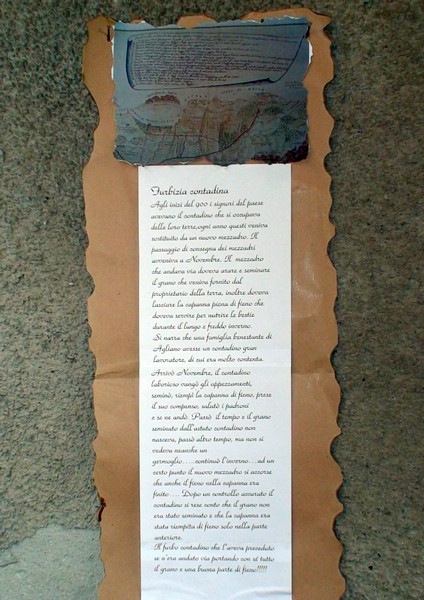 Furbizia contadina
Agli inizi del 900 i signori del paese
avevano il contadino che si occupava
delle loro terre,ogni anno questi veniva
sostituito da un nuovo mezzadro. Il
passaggio di consegna dei mezzadri
avveniva a Novembre. Il mezzadro
che andava via doveva arare e seminare
il grano che veniva fornito dal
proprietario della terra, inoltre doveva
lasciare la capanna piena di fieno che
doveva servire per nutrire le bestie
durante il lungo e freddo inverno.
Si narra che una famiglia benestante di
Agliano avesse un contadino gran
lavoratore, di cui era molto contenta.
Arrivò Novembre, il contadino
laborioso vangò gli appezzamenti,
seminò, riempì la capanna di fieno, prese
il suo compenso, salutò i padroni
e se ne andò. Passò il tempo e il grano
seminato dall'astuto contadino non
nasceva, passò altro tempo, ma non si
vedeva neanche un
germoglio.....continuò l'inverno....ad un
certo punto il nuovo mezzadro si accorse
che anche il fieno nella capanna era
finito.... Dopo un controllo accurato il
contadino si rese conto che il grano non
era stato seminato e che la capanna era
stata riempita di fieno solo nella parte
anteriore.
Il furbo contadino che l'aveva preceduto
se n'era andato via portando con sé tutto
il grano e una buona parte di fieno!!!!!